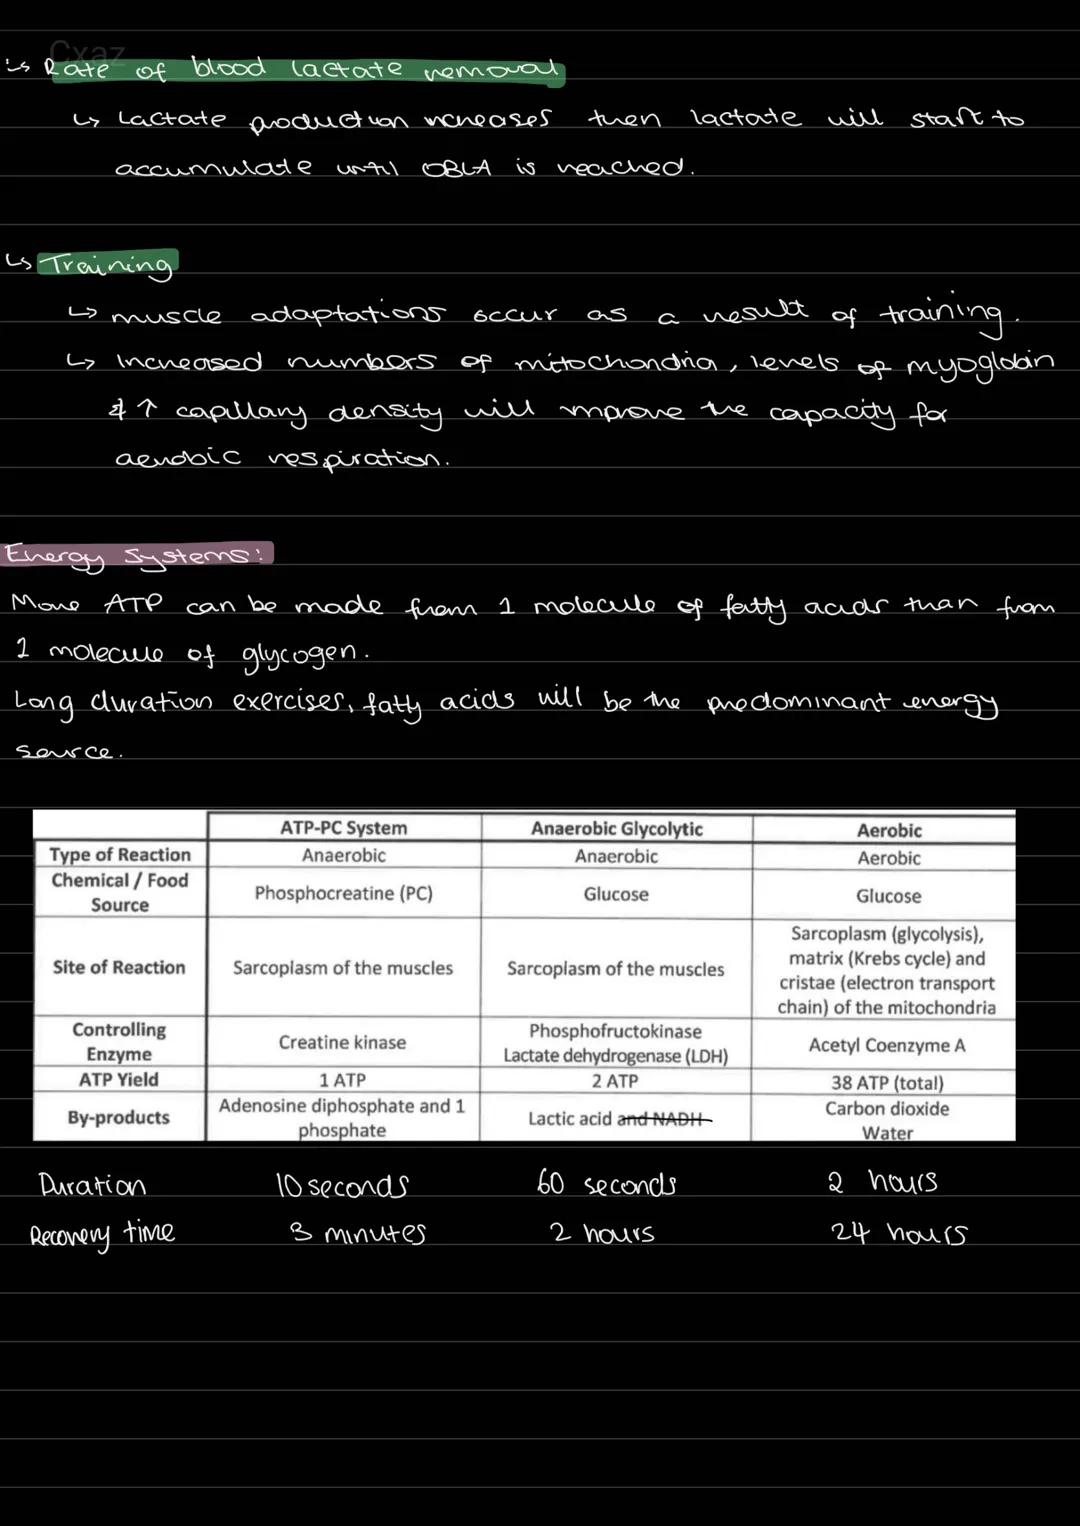 Cxaz
↳ Rate of blood lactate removal
↳ Lactate production increases then lactate will start to
accumulate until OBLA is reached.
↳ Training
↳ muscle adaptations occur as a result of training.
↳ Increased numbers of mitochondria, levels of myoglobin
& ↑ capillary density will improve the capacity for
aerobic respiration.
Energy Systems:
More ATP can be made from 1 molecule of fatty acids than from
1 molecule of glycogen.
Long duration exercises, fatty acids will be the predominant energy
source.
ATP-PC System Anaerobic Glycolytic Aerobic
Type of Reaction Anaerobic Anaerobic Aerobic
Chemical / Food Source Phosphocreatine (PC) Glucose Glucose
Site of Reaction Sarcoplasm of the muscles Sarcoplasm of the muscles Sarcoplasm (glycolysis), matrix (Krebs cycle) and cristae (electron transport chain) of the mitochondria
Controlling Enzyme Creatine kinase Phosphofructokinase Lactate dehydrogenase (LDH) Acetyl Coenzyme A
ATP Yield 1 ATP 2 ATP 38 ATP (total)
By-products Adenosine diphosphate and 1 phosphate Lactic acid and NADH Carbon dioxide Water
Duration 10 seconds 60 seconds 2 hours
Recovery time 3 minutes 2 hours 24 hours